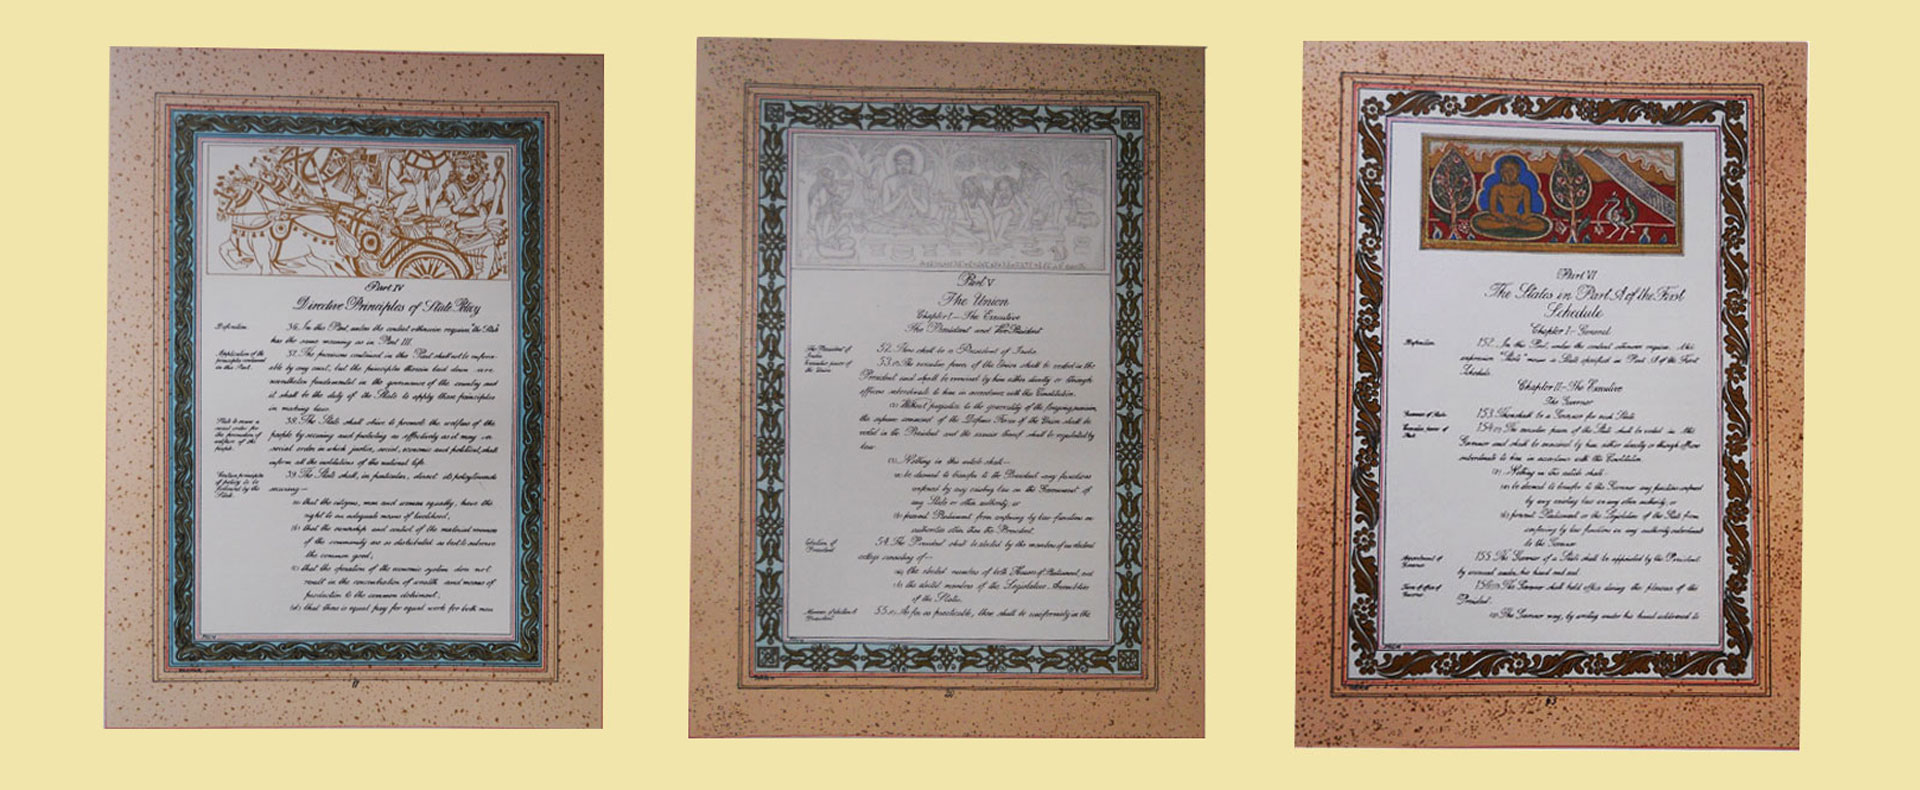 Part IV
Directive Principles of State Policy
Definition.
36. In this Part, unless the context otherwise requires, "the State"
has the same meaning as in Part III.
Application of the
principles contained
in this Part.
37. The provisions contained in this Part shall not be enforce-
able by any court, but the principles therein laid down are
nevertheless fundamental in the governance of the country and
it shall be the duty of the State to apply these principles
in making laws.
State to secure a
social order for
the promotion of
welfare of the
people.
38. The State shall strive to promote the welfare of the
people by securing and protecting as effectively as it may a
social order in which justice, social, economic and political, shall
inform all the institutions of the national life.
Certain principles
of policy to be
followed by the
State.
39. The State shall, in particular, direct its policy towards
securing—
(a) that the citizens, men and women equally, have the
right to an adequate means of livelihood;
(b) that the ownership and control of the material resources
of the community are so distributed as best to subserve
the common good;
(c) that the operation of the economic system does not
result in the concentration of wealth and means of
production to the common detriment;
(d) that there is equal pay for equal work for both men
17
Part V
The Union
Chapter I.—The Executive
The President and Vice-President
The President of
India.
52. There shall be a President of India.
Executive power of
the Union.
53. (1) The executive power of the Union shall be vested in the
President and shall be exercised by him either directly or through
officers subordinate to him in accordance with this Constitution.
(2) Without prejudice to the generality of the foregoing provision,
the supreme command of the Defence Forces of the Union shall be
vested in the President and the exercise thereof shall be regulated by
law.
(3) Nothing in this article shall—
(a) be deemed to transfer to the President any functions
conferred by any existing law on the Government of
any State or other authority; or
(b) prevent Parliament from conferring by law functions on
authorities other than the President.
Election of
President.
54. The President shall be elected by the members of an electoral
college consisting of—
(a) the elected members of both Houses of Parliament; and
(b) the elected members of the Legislative Assemblies
of the States.
Manner of election of
President.
55. (1) As far as practicable, there shall be uniformity in the
20
Part VI
The States in Part A of the First
Schedule
Chapter I.—General
Definition.
152. In this Part, unless the context otherwise requires, the
expression "State" means a State specified in Part A of the First
Schedule.
Chapter II.—The Executive
The Governor
Governors of States.
153. There shall be a Governor for each State.
Executive power of
State.
154. (1) The executive power of the State shall be vested in the
Governor and shall be exercised by him either directly or through officers
subordinate to him in accordance with this Constitution.
(2) Nothing in this article shall—
(a) be deemed to transfer to the Governor any functions conferred
by any existing law on any other authority; or
(b) prevent Parliament or the Legislature of the State from
conferring by law functions on any authority subordinate
to the Governor.
Appointment of
Governor.
155. The Governor of a State shall be appointed by the President
by warrant under his hand and seal.
Term of office of
Governor.
156. (1) The Governor shall hold office during the pleasure of the
President.
(2) The Governor may, by writing under his hand addressed to